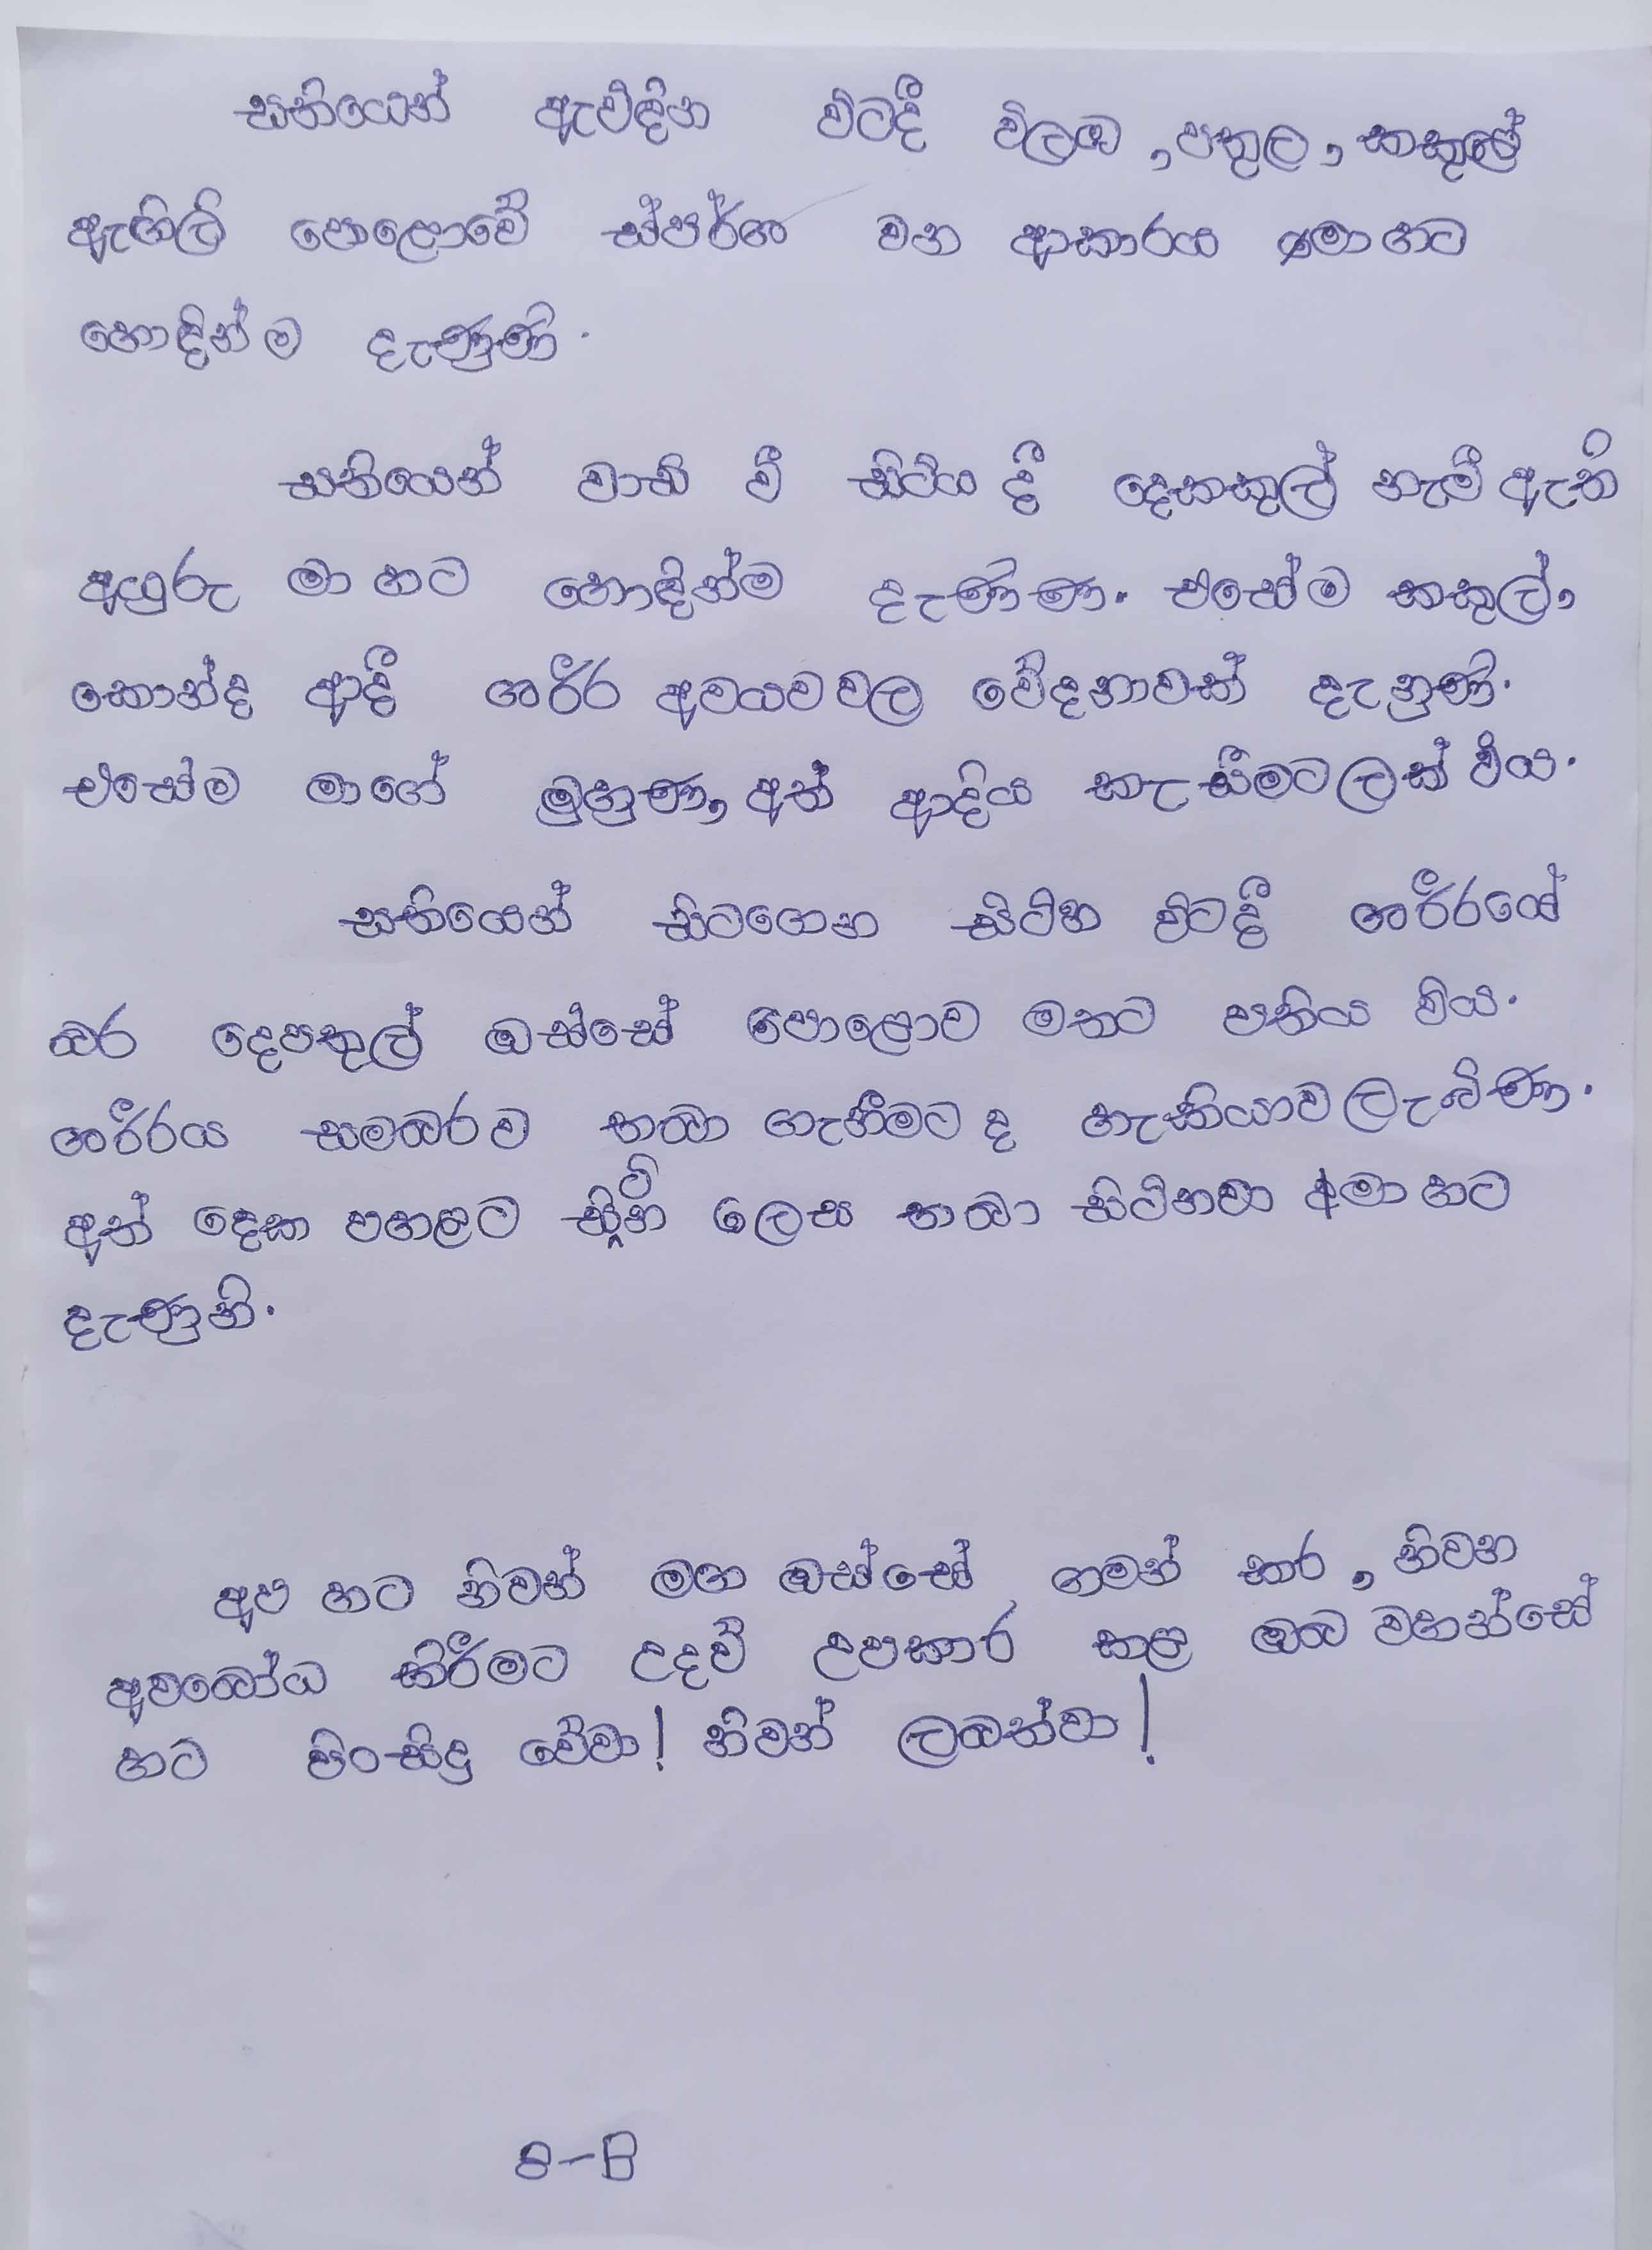 සතියෙන් ඇවිදින විටදී විලුඹ, පතුල, කකුලේ
ඇඟිලි පොළොවේ ස්පර්ශ වන ආකාරය මා හට
හොඳින්ම දැණුණි.
සතියෙන් වාඩි වී සිටිය දී දෙකකුල් නැමී ඇති
අයුරු මා හට හොඳින්ම දැණිණ. එසේම කකුල්,
කොන්ද ආදී ශරීර අවයවවල වේදනාවක් දැනුණි.
එසේම මාගේ මුහුණ, අත් ආදිය කැසීමට ලක් විය.
සතියෙන් සිටගෙන සිටින විටදී ශරීරයේ
බර දෙපතුල් ඔස්සේ පොළොව මතට පතිය විය.
ශරීරය සමබරව තබා ගැනීමට ද හැකියාව ලැබිණ.
අත් දෙක පහළට සිටින ලෙස තබා සිටිනවා මා හට
දැණුනි.
අප හට නිවන් මඟ ඔස්සේ ගමන් කර, නිවන
අවබෝධ කිරීමට උදව් උපකාර කළ ඔබ වහන්සේ
හට පිංසිදු වේවා! නිවන් ලබත්වා!
8-B